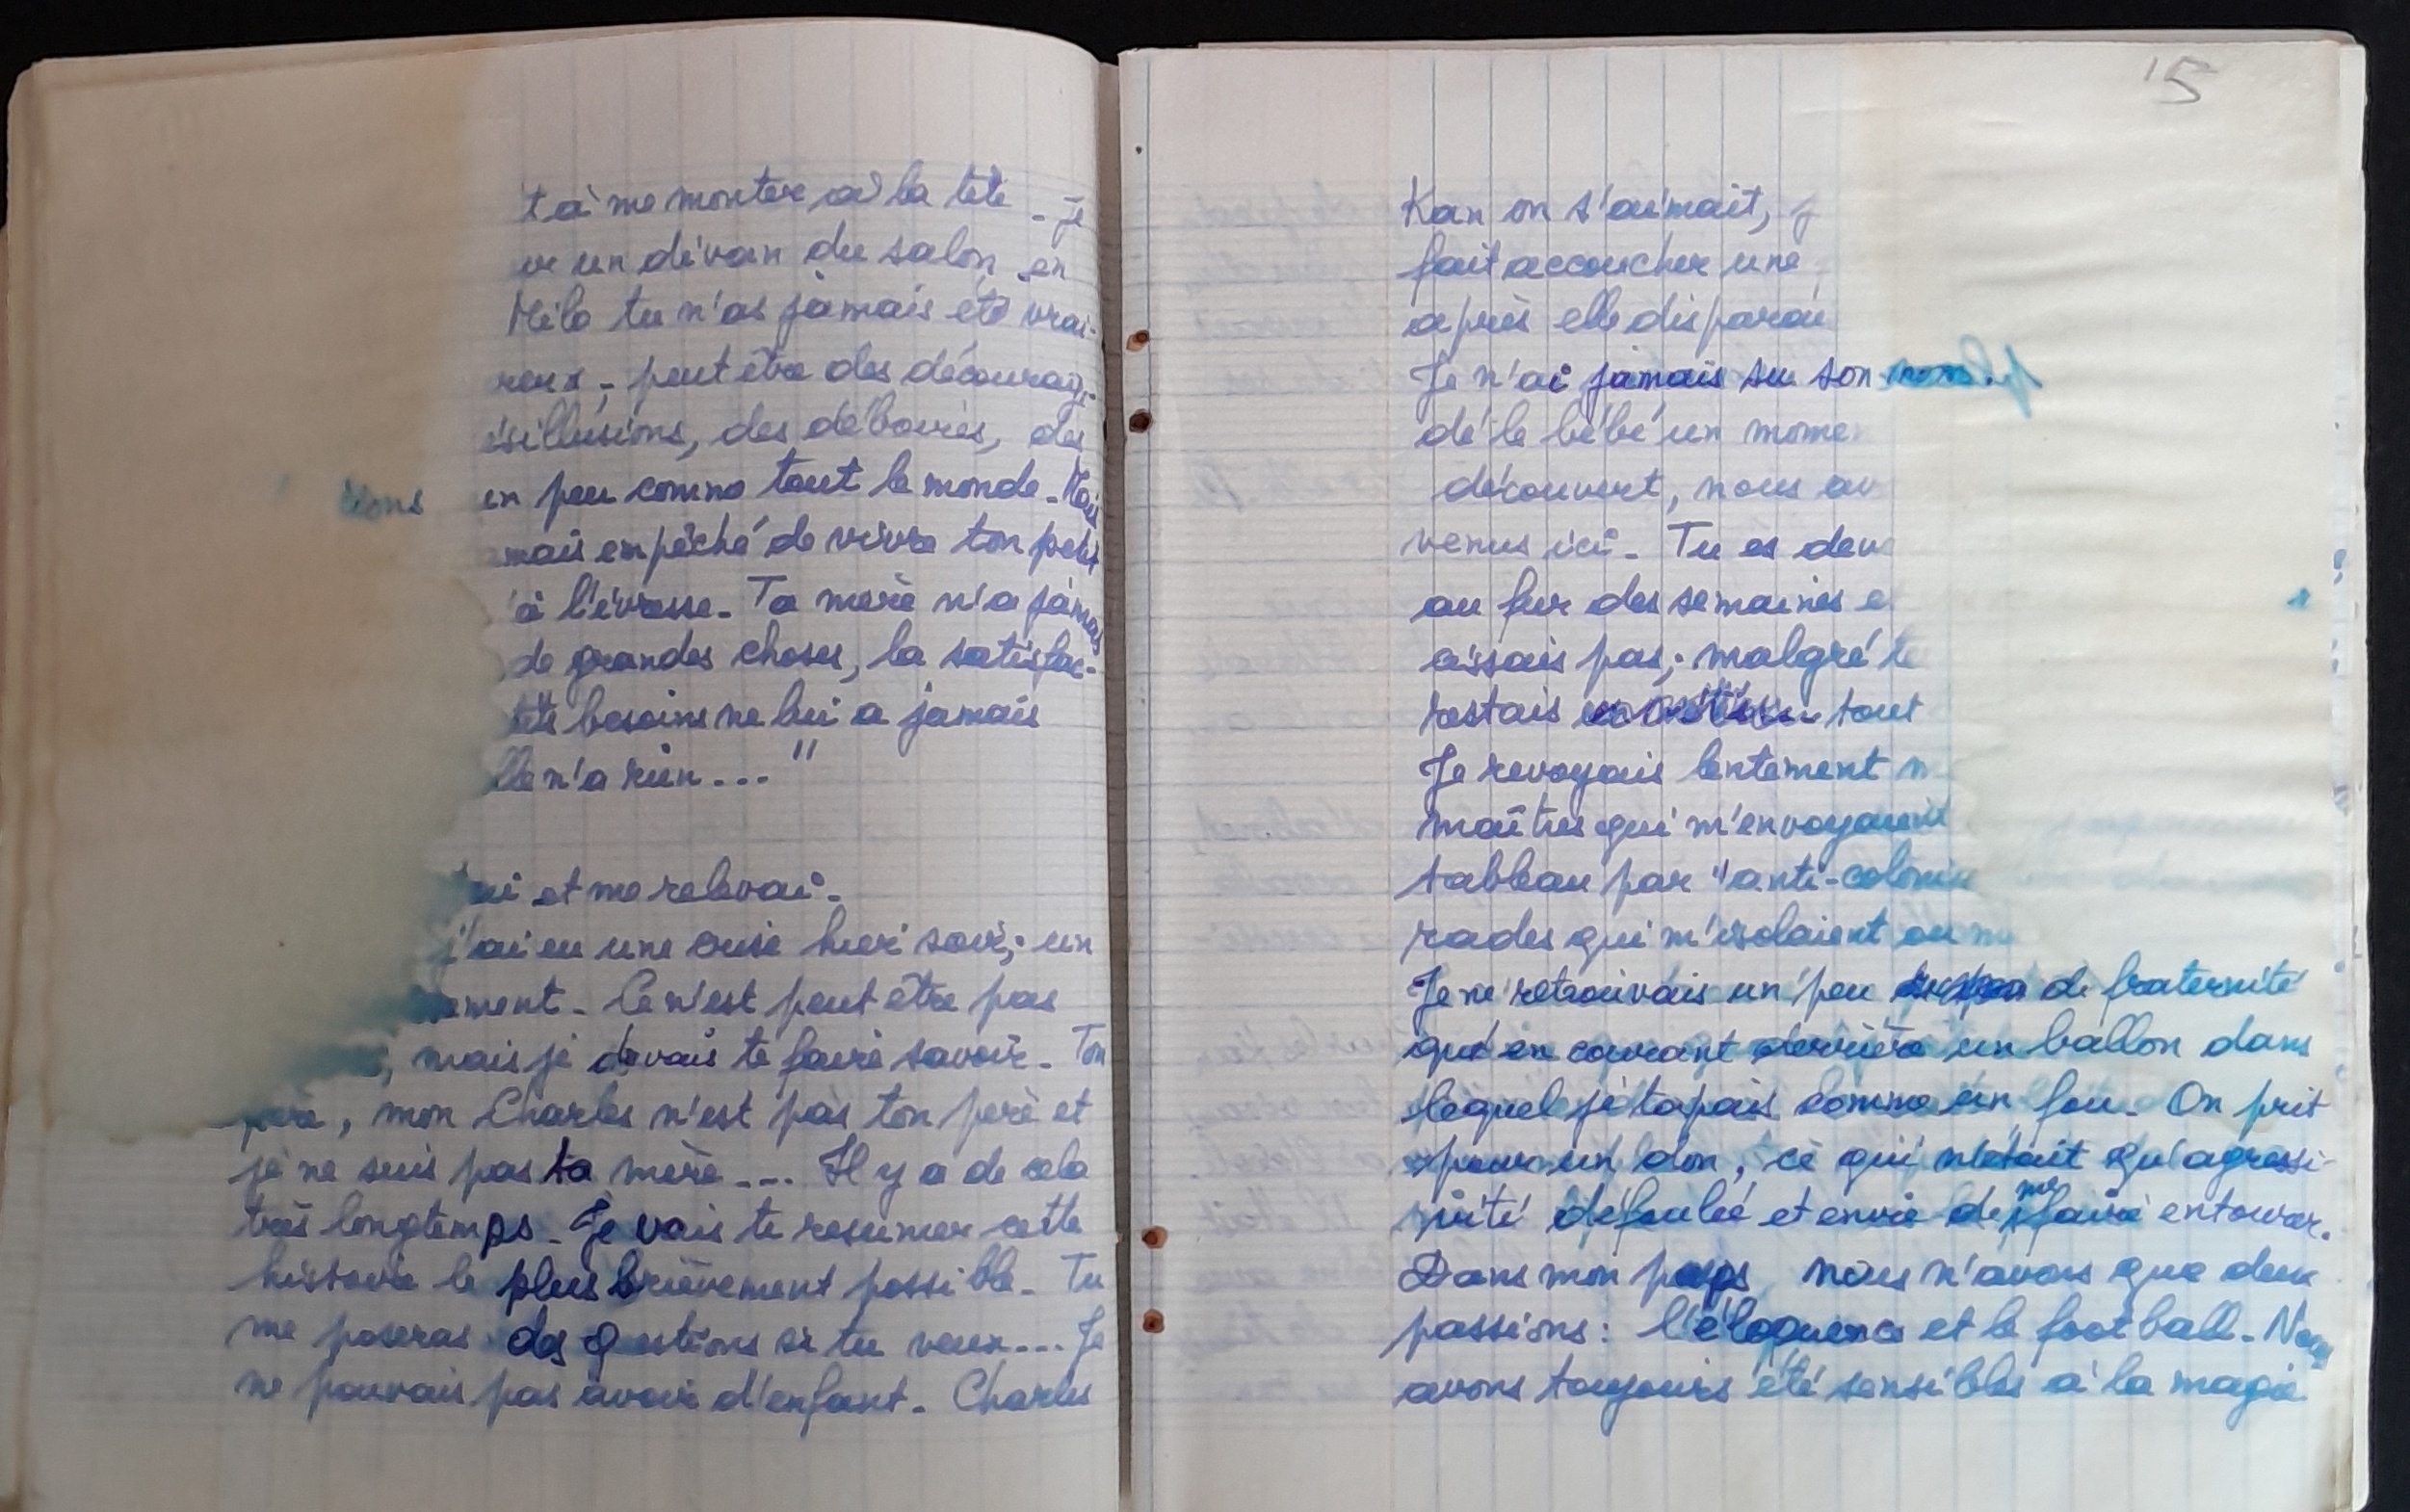 t à me monter à la tête - Je
un divan du salon en
Milo tu n'as jamais été vrai-
reux, peut être des découragе-
ésillusions, des déboires, des
tions un peu comme tout le monde - Mais
mais empêché de vivre ton petit
à l'ivresse - Ta mère n'a jamais
de grandes choses, la satisfac-
tits besoins ne lui a jamais
lle n'a rien..."
et me relevai -
j'ai eu une crise hier soir; un
ement - Ce n'est peut être pas
, mais je devais te faire savoir - Ton
père, mon Charles n'est pas ton père et
je ne suis pas ta mère... Il y a de cela
très longtemps - Je vais te résumer cette
histoire le plus brièvement possible - Tu
me poseras des questions si tu veux... Je
ne pouvais pas avoir d'enfant - Charles
15
Kan on s'aimait, j
fait accoucher une
après elle disparai
Je n'ai jamais su son nom.
dé le bébé un momen
découvert, nous av
venus ici - Tu es dev
au fur des semaines e
aissais pas; malgré te
restais tout
Je revoyais lentement m
maîtres qui m'envoyaient
tableau par "anti-coloni
rades qui m'isolaient ou m
Je ne retrouvais un peu de fraternité
qu'en courant derrière un ballon dans
lequel je tapais comme un fou - On prit
pour un don, ce qui n'était qu'agressi-
vité défoulée et envie de me faire entourer.
Dans mon pays nous n'avons que deux
passions: l'éloquence et le football - Nous
avons toujours été sensibles à la magie